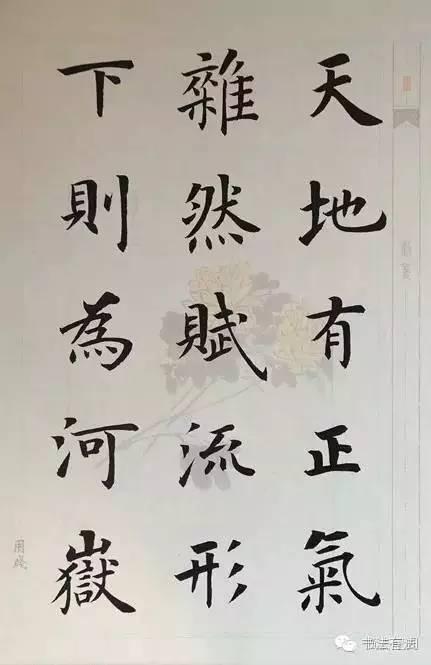 天地有正氣
雜然賦流形
下則為河嶽
书法有法